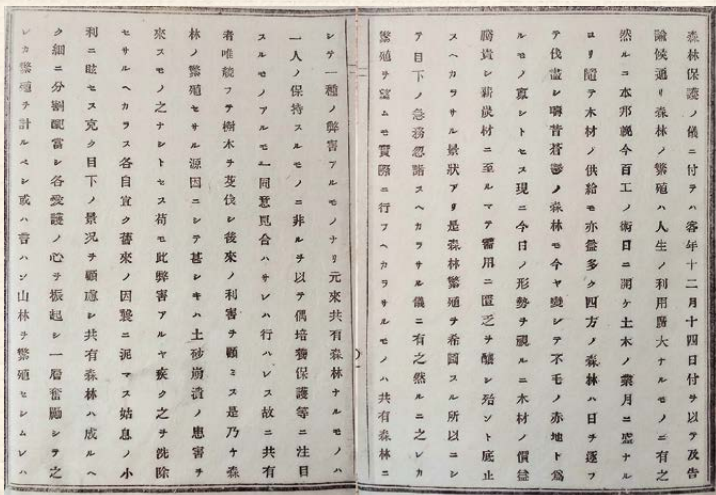 森林保護ノ儀ニ付テハ客年十二月十四日付ヲ以テ及告
諭候通リ森林ノ繁殖ハ人生ノ利用廣大ナルモノニ有之
然ルニ本邦輓今百工ノ術日ニ開ケ土木ノ業月ニ盛ナル
ヨリ隨テ木材ノ供給モ亦益多ク四方ノ森林ハ日ヲ逐フ
テ伐盡シ疇昔蒼鬱ノ森林モ今ヤ變シテ不毛ノ赤地ト為
ルモノ寡シトセス現ニ今日ノ形勢ヲ視ルニ木材ノ價益
騰貴シ薪炭材ニ至ルマテ需用ニ匱乏ヲ釀シ殆ント底止
スヘカラサル景狀アリ是森林繁殖ヲ希圖スル所以ニシ
テ目下ノ急務忽諸スヘカラサル儀ニ有之然ルニ之レカ
繁殖ヲ望ムモ實際ニ行フヘカラサルモノハ共有森林ニ
シテ一種ノ弊害アルモノナリ元來共有森林ナルモノハ
一人ノ保持スルモノニ非ルヲ以テ偶培養保護等ニ注目
スルモノアルモ一同意見合ハサレハ行ハレス故ニ共有
者唯能フテ樹木ヲ芟伐シ後來ノ利害ヲ顧ミス是乃ケ森
林ノ繁殖セサル源因ニシテ甚シキハ土砂崩潰ノ患害ヲ
來スモノ之ナシトセス苟モ此弊害アルヤ疾ク之ヲ洗除
セサルヘカラス各自宜ク舊來ノ因襲ニ泥マス姑息ノ小
利ニ眩セス克ク目下ノ景况ヲ顧慮シ共有森林ハ成ルヘ
ク細ニ分割配當シ各愛護ノ心ヲ振起シ一層奮勵シテ之
レカ繁殖ヲ計ルベシ或ハ書ハン山林ヲ繁殖セシムレハ